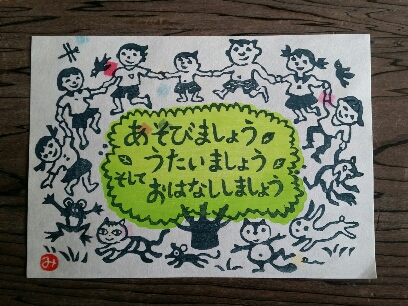 あそびましょう
うたいましょう
そして
おはなししましょう
み